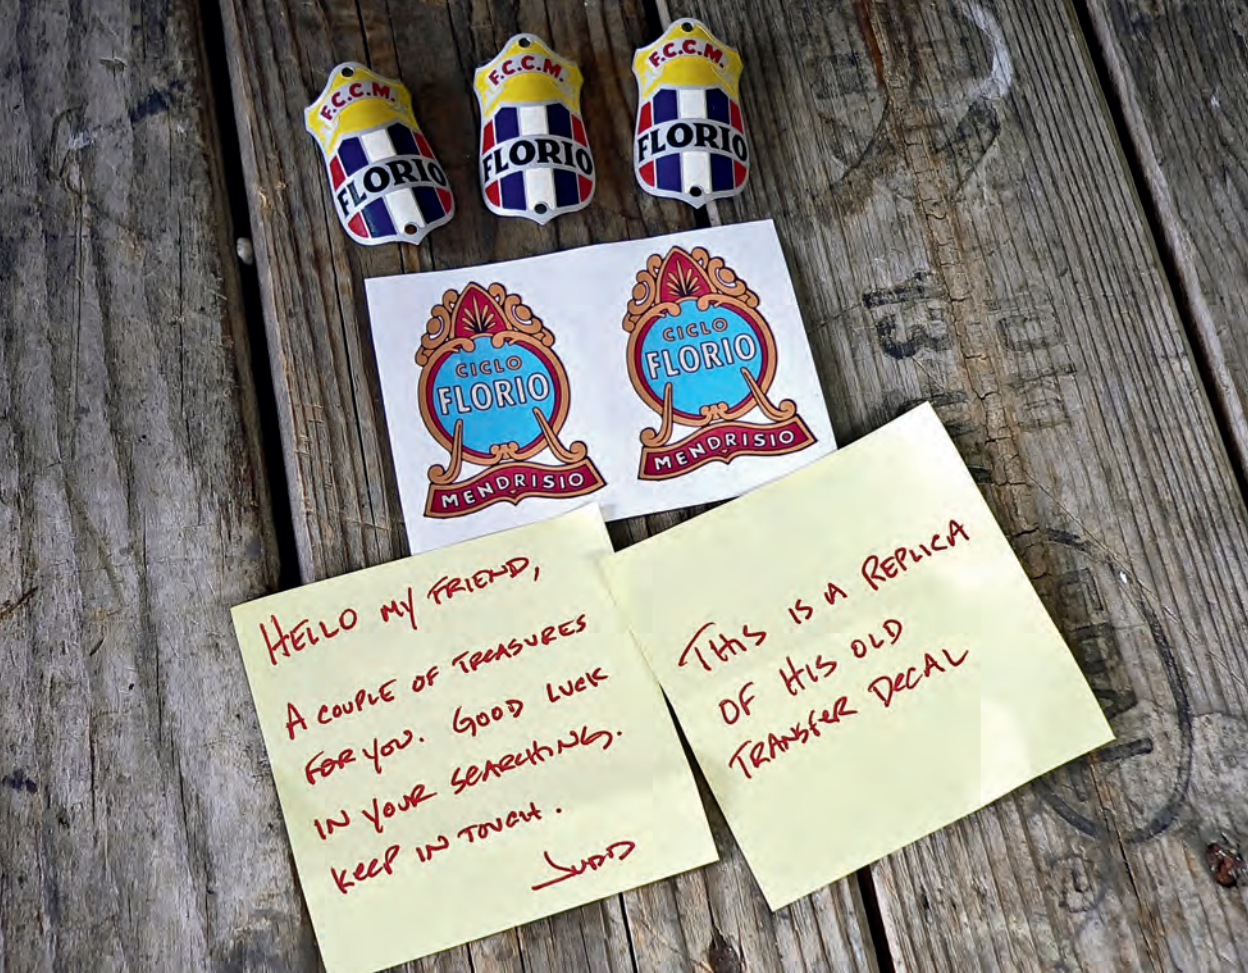 F.C.C.M.
FLORIO
F.C.C.M.
FLORIO
F.C.C.M.
FLORIO
CICLO
FLORIO
MENDRISIO
CICLO
FLORIO
MENDRISIO
HELLO MY FRIEND,
A COUPLE OF TREASURES
FOR YOU. GOOD LUCK
IN YOUR SEARCHING.
KEEP IN TOUCH.
JUDD
THIS IS A REPLICA
OF HIS OLD
TRANSFER DECAL